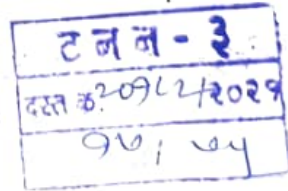 ट न न - ३
दस्त क्र. २०१८२/२०२१
१५/७५